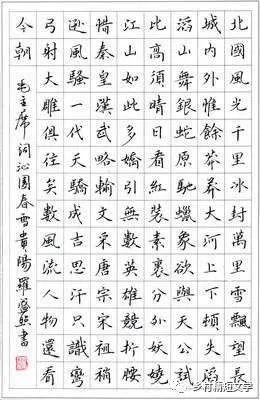 北國風光千里冰封萬里雪飄望長
城内外惟餘莽莽大河上下頓失滔
滔山舞銀蛇原馳蠟象欲與天公試
比高須晴日看紅裝素裹分外妖嬈
江山如此多嬌引無數英雄競折腰
惜秦皇漢武略輸文采唐宗宋祖稍
遜風騷一代天驕成吉思汗只識彎
弓射大雕俱往矣數風流人物還看
今朝
毛主席詞沁園春雪貴陽羅書
乡村精短文学